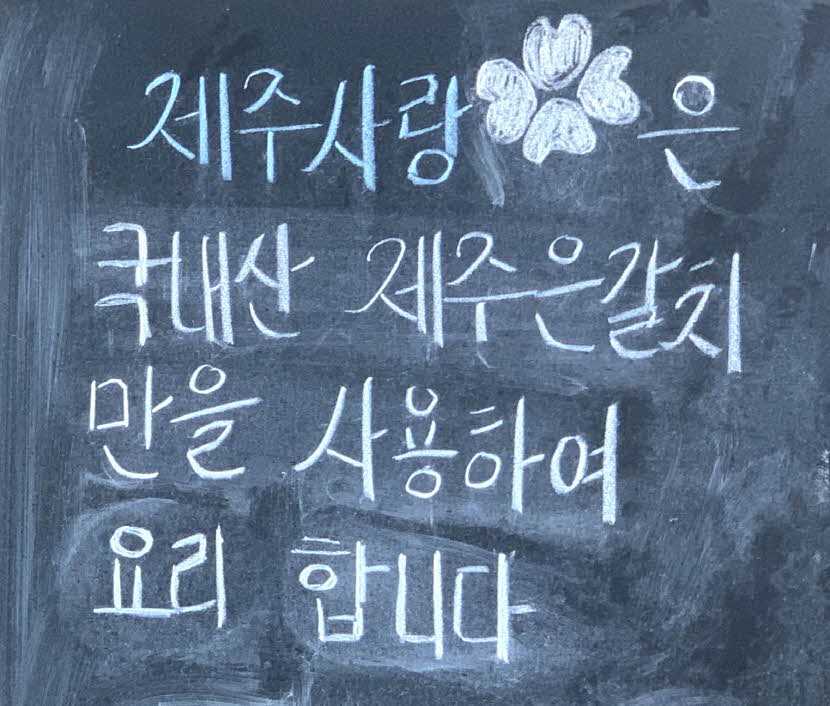 제주사랑은
국내산 제주은갈치
만을 사용하여
요리 합니다